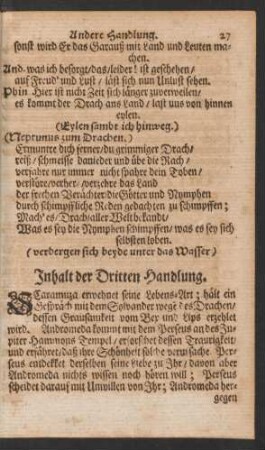 Andere Handlung. 27
sonst wird Er das Garauß mit Land und Leuten ma-
chen.
And. was ich besorgt/das/leider! ist geschehen/
auf Freud' und Lust / läst sich nun Unlust sehen.
Phin Hier ist nicht Zeit sich länger zuverweilen/
es kommt der Drach ans Land/ last uns von hinnen
eylen.
(Eylen sämbt ich hinweg.)
(Neptunus zum Drachen.)
Ermuntre dich ferner/du grimmiger Drach/
reiß/ schmeisse danieder und übe die Rach/
verfahre nur immer nicht spahre dein Toben/
verstöre/verher/verzehre das Land
der frechen Verächter die Götter und Nymphen
durch schimpfliche Reden gedachten zu schimpffen;
Mach' es/Drach/aller Welt bekandt/
Was es sey die Nymphen schimpffen/ was es sey sich
selbsten loben.
(verbergen sich beyde unter das Wasser)
Inhalt der Dritten Handlung.
SCaramuza erwehnet seine Lebens-Art; hält ein
Gespräch mit dem Solvander wegen des Drachen/
dessen Grausamkeit vom Bey und Lips erzehlet
wird. Andromeda kommt mit dem Perseus an des Ju-
piter Hammons Tempel/ erforschet dessen Traurigkeit/
und erfähret/daß ihre Schönheit solche verursache. Per-
seus entdekket derselben seine Liebe zu Ihr/ davon aber
Andromeda nichts wissen noch hören will; Perseus
scheidet darauf mit Unwillen von Ihr; Andromeda her-
gegen